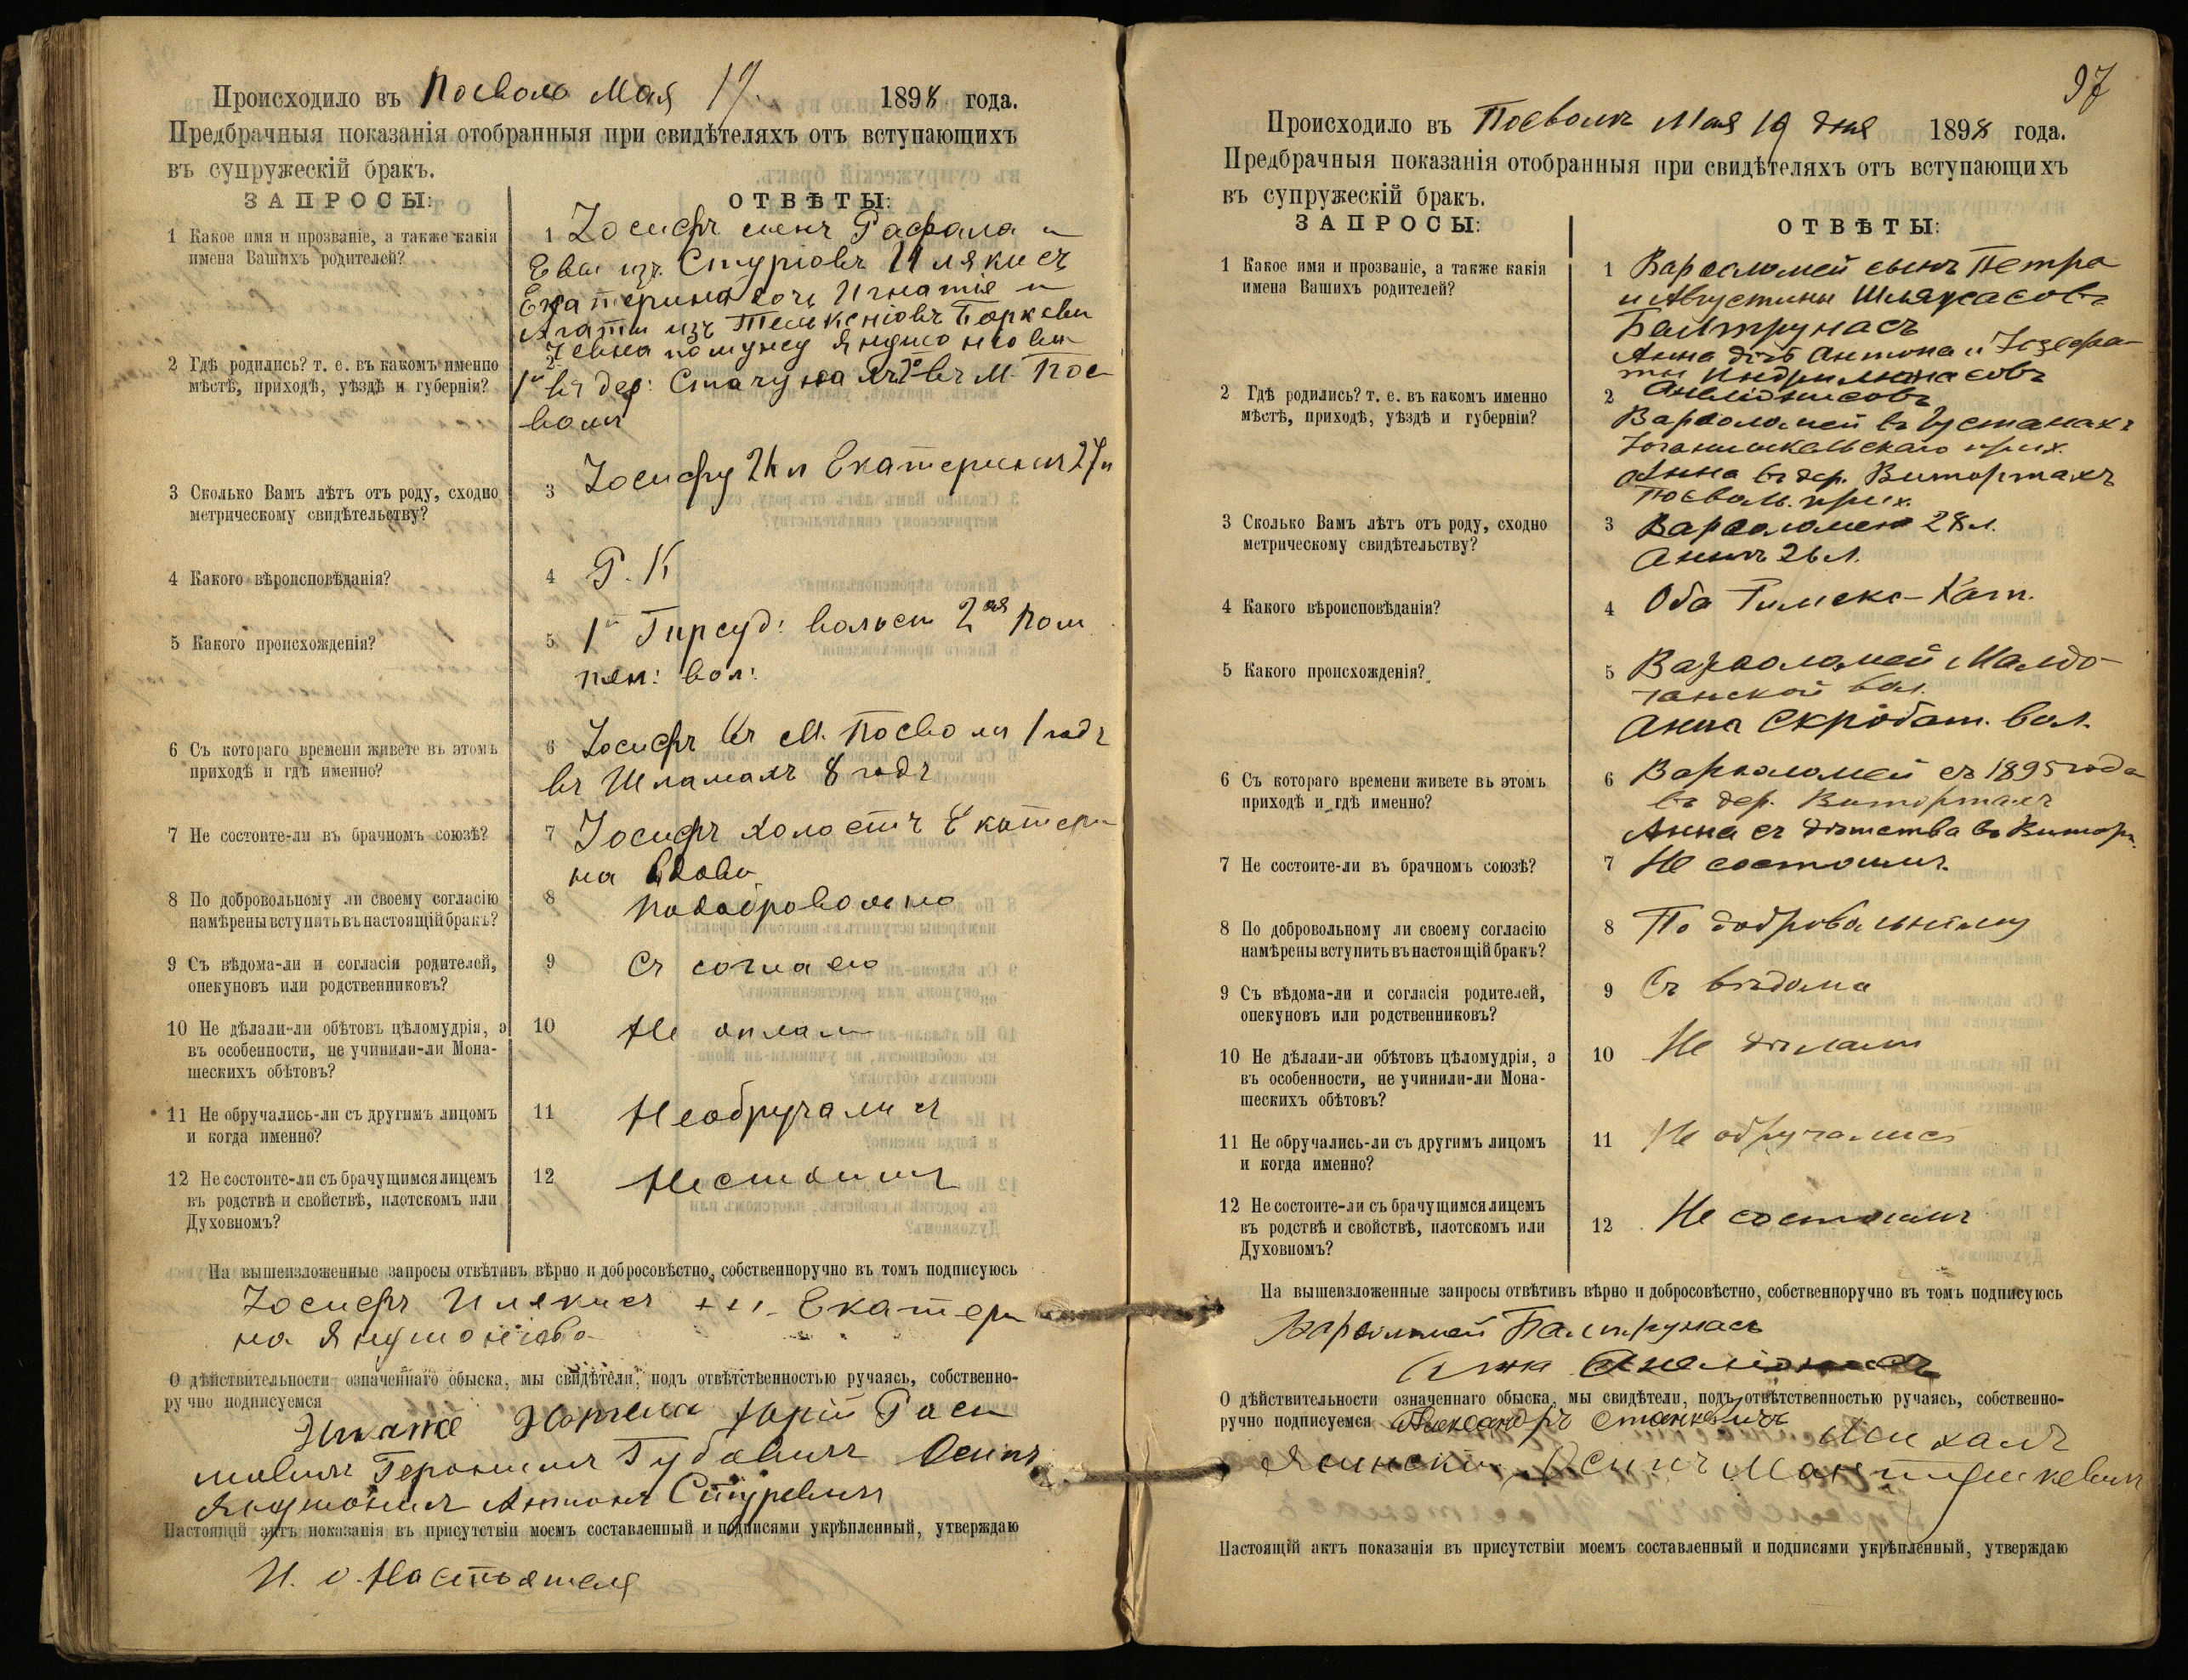 Происходило въ Посволѣ Мая 17 1898 года.
Предбрачныя показанія отобранныя при свидѣтеляхъ отъ вступающихъ
въ супружескій бракъ.
ЗАПРОСЫ:
ОТВѢТЫ:
1 Какое имя и прозваніе, а также какія
имена Вашихъ родителей?
1 Іосифъ сынъ Рафала и
Евы изъ Стуріовъ Илякисъ
Екатерина дочь Игнатія и
Агаты изъ
по мужу
2 Гдѣ родились? т. е. въ какомъ именно
мѣстѣ, приходѣ, уѣздѣ и губерніи?
2
въ дер: въ М. Пос
волѣ
3 Сколько Вамъ лѣтъ отъ роду, сходно
метрическому свидѣтельству?
3 Іосифу Екатеринѣ 27 л
4 Какого вѣроисповѣданія?
4 Р. К
5 Какого происхожденія?
5 1й Гирсуд: волост 2ая Пом
пян: вол:
6 Съ котораго времени живете въ этомъ
приходѣ и гдѣ именно?
6 Іосифъ въ М. Посволѣ 1 годъ
въ 8 годъ
7 Не состоите-ли въ брачномъ союзѣ?
7 Іосифъ холостъ Екатери
на вдова
8 По добровольному ли своему согласію
намѣрены вступить въ настоящій бракъ?
8 Подобровольно
9 Съ вѣдома-ли и согласія родителей,
опекуновъ или родственниковъ?
9 Съ
10 Не дѣлали-ли обѣтовъ цѣломудрія, а
въ особенности, не учинили-ли Мона-
шескихъ обѣтовъ?
10 Не
11 Не обручались-ли съ другимъ лицомъ
и когда именно?
11 Необручались
12 Не состоите-ли съ брачущимся лицемъ
въ родствѣ и свойствѣ, плотскомъ или
Духовномъ?
12
На вышеизложенные запросы отвѣтивъ вѣрно и добросовѣстно, собственноручно въ томъ подписуюсь
Іосифъ Илякисъ +++ Екатери
на
О дѣйствительности означеннаго обыска, мы свидѣтели, подъ отвѣтственностью ручаясь, собственно-
ручно подписуемся
Юрій
Геронимъ Осипъ
Антонъ
Настоящій актъ показанія въ присутствіи моемъ составленный и подписями укрѣпленный, утверждаю
И. о. Настоятеля
97
Происходило въ Посволѣ Мая 19 дня 1898 года.
Предбрачныя показанія отобранныя при свидѣтеляхъ отъ вступающихъ
въ супружескій бракъ.
ЗАПРОСЫ:
ОТВѢТЫ:
1 Какое имя и прозваніе, а также какія
имена Вашихъ родителей?
1 Варѳоломей сынъ Петра
и Августины
Балтрунасъ
Анна дочь Антона и Іозефа-
ты
2 Гдѣ родились? т. е. въ какомъ именно
мѣстѣ, приходѣ, уѣздѣ и губерніи?
2
Варѳоломей въ
прих.
Анна въ дер. Витортахъ
Посвол. прих.
3 Сколько Вамъ лѣтъ отъ роду, сходно
метрическому свидѣтельству?
3 Варѳоломею 28 л.
Аннѣ 26 л.
4 Какого вѣроисповѣданія?
4 Оба Римско-Кат.
5 Какого происхожденія?
5 Варѳоломей
вол.
Анна Скробот. вол.
6 Съ котораго времени живете въ этомъ
приходѣ и гдѣ именно?
6 Варѳоломей съ 1895 года
въ дер. Витортахъ
Анна съ дѣтства въ Виторт.
7 Не состоите-ли въ брачномъ союзѣ?
7 Не состоимъ.
8 По добровольному ли своему согласію
намѣрены вступить въ настоящій бракъ?
8 По добровольному
9 Съ вѣдома-ли и согласія родителей,
опекуновъ или родственниковъ?
9 Съ вѣдома
10 Не дѣлали-ли обѣтовъ цѣломудрія, а
въ особенности, не учинили-ли Мона-
шескихъ обѣтовъ?
10 Не дѣлали
11 Не обручались-ли съ другимъ лицомъ
и когда именно?
11 Не обручались
12 Не состоите-ли съ брачущимся лицемъ
въ родствѣ и свойствѣ, плотскомъ или
Духовномъ?
12 Не состоимъ
На вышеизложенные запросы отвѣтивъ вѣрно и добросовѣстно, собственноручно въ томъ подписуюсь
Варѳоломей Балтрунасъ
Анна
О дѣйствительности означеннаго обыска, мы свидѣтели, подъ отвѣтственностью ручаясь, собственно-
ручно подписуемся Александръ Станкевичъ Михалъ
Ясинскій, Осипъ
Настоящій актъ показанія въ присутствіи моемъ составленный и подписями укрѣпленный, утверждаю